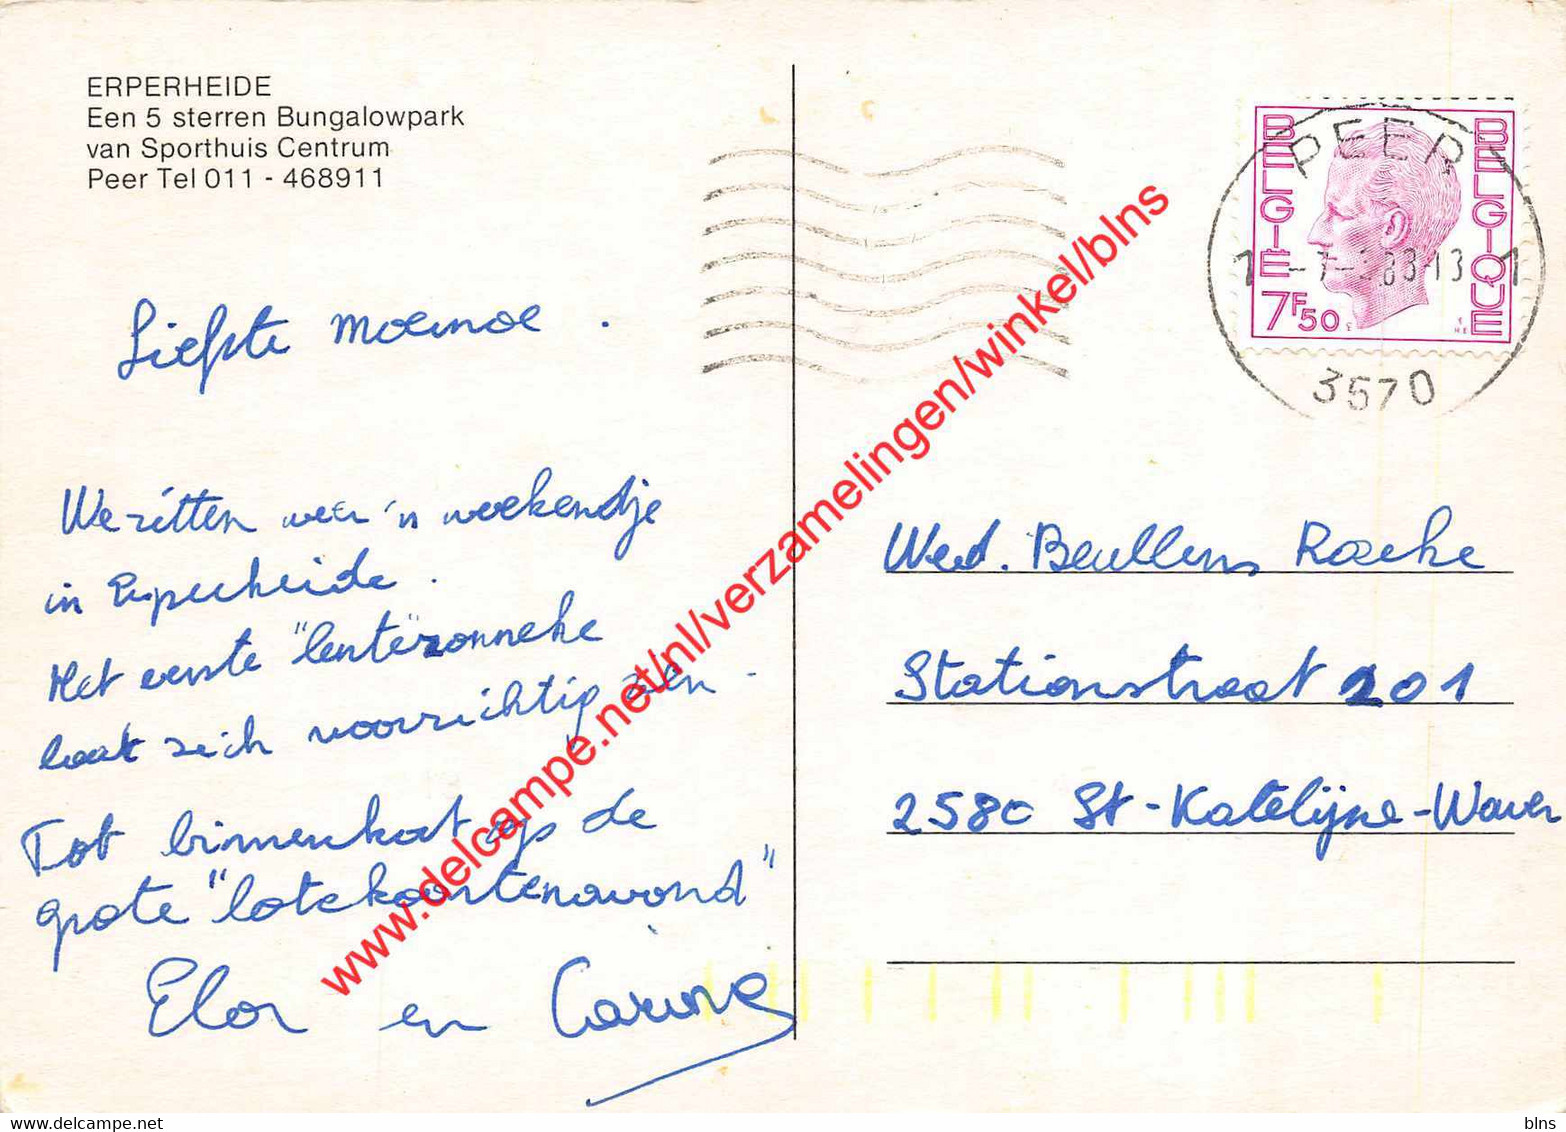 ERPERHEIDE
Een 5 sterren Bungalowpark
van Sporthuis Centrum
Peer Tel 011 - 468911
Liefste moemoe .
We zitten weer 'n weekendje
in Erperheide .
Het eerste "lente"zonneke
laat zich voorzichtig zien .
Tot binnenkort op de
grote "lotekaartenavond"
Elon en Carine
BELGIË BELGIQUE
7F50
PEER
1 -7-2.83-13 1
3570
Wed. Beullens Roeske
Stationstraat 201
2580 St-Katelijne-Waver
www.delcampe.net/nl/verzamelingen/winkel/blns
blns